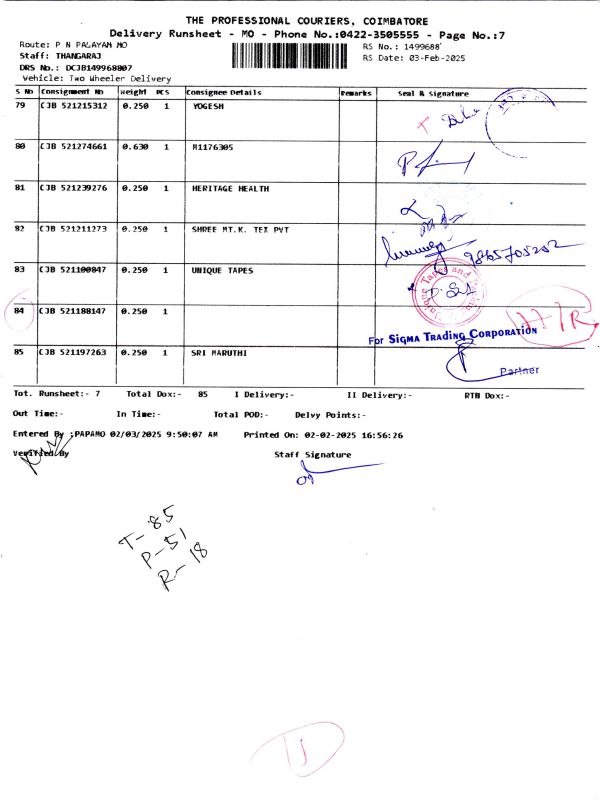 THE PROFESSIONAL COURIERS, COIMBATORE
Delivery Runsheet - MO - Phone No.:0422-3505555 - Page No.:7
Route: P N PALAYAM MO RS No.: 1499688
Staff: THANGARAJ RS Date: 03-Feb-2025
DRS No.: DCJB149968807
Vehicle: Two Wheeler Delivery
S No Consignment No Weight PCS Consignee Details Remarks Seal & Signature
79 CJB 521215312 0.250 1 YOGESH
80 CJB 521274661 0.630 1 M1176305
81 CJB 521239276 0.250 1 HERITAGE HEALTH
82 CJB 521211273 0.250 1 SHREE MT.K. TEX PVT
9865705202
83 CJB 521100847 0.250 1 UNIQUE TAPES
84 CJB 521188147 0.250 1
For SIGMA TRADING CORPORATION
85 CJB 521197263 0.250 1 SRI MARUTHI
Partner
Tot. Runsheet:- 7 Total Dox:- 85 I Delivery:- II Delivery:- RTN Dox:-
Out Time:- In Time:- Total POD:- Delvy Points:-
Entered By :PAPAMO 02/03/2025 9:50:07 AM Printed On: 02-02-2025 16:56:26
Verified By Staff Signature
T- 85
P- 51
R- 18